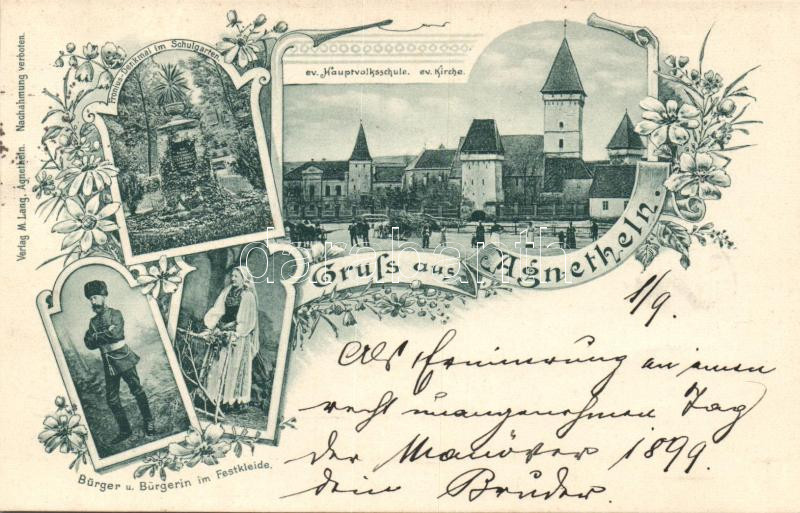 Verlag M. Lang, Agnetheln. Nachahmung verboten.
Fronius-Denkmal im Schulgarten.
ev. Hauptvolksschule. ev. Kirche.
Gruß aus Agnetheln.
darabanth.com
Bürger u. Bürgerin im Festkleide.
1/9.
Als Erinnerung an einen
recht unangenehmen Tag
der Manöver 1899.
dein Bruder.